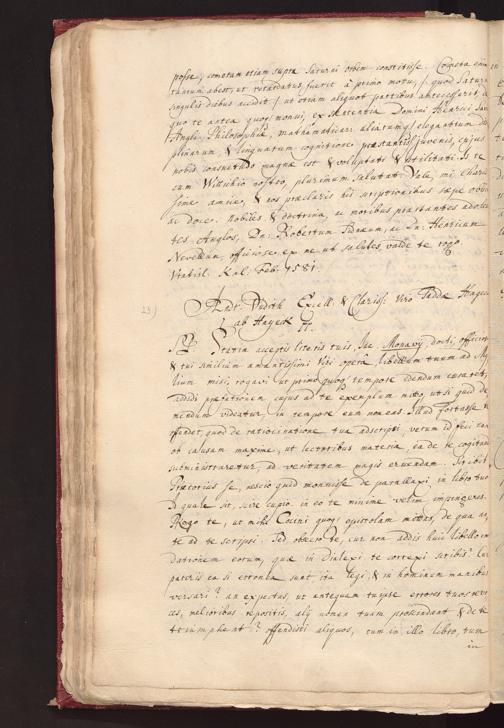 posse, cometam etiam supra Saturni orbem constitisse. Cometa enim
tantum abest, ut retardatus fuerit à primo motu, quod Saturno
singulis diebus accidit, ut etiam aliquot partibus antecesserit
quo te antea quoq monui, ex sententia Domini Henrici
Angli, Philosophiæ, Mathematicar aliarumq elegantium
plinarum, & linguarum cognitione præstantiss juvenis, cujus
nobis consuetudo magnæ est & voluptati & utilitati. Is te
cum Wittichio nostro, plurimum salutat. Vale, mi charis
sime amice, & nos præclaris his scriptionibus sæpe
ac doce. Nobiles & doctrina, ac moribus præstantes adoles
tes Anglos, Dn: Robertum Sidnæum, ac Dn: Henricum
Nevellum, officiose ex me ut salutes, valde te rogo.
Vratisl. Kal. Feb: 1581.
23.) Andr. Dudith Excell: & Clariss: Viro Taddæ Hagec
ab Hayeck
SP Steria acceptis literis tuis, Jac. Monavij, docti, officiosi
& tui similium amantissimi Viri operâ, libellum tuum ad
lium misi, rogavi ut primo quoq tempore edendum curaret,
addidi præfationem, cujus ad te exemplum mitto, ut si quid
mendum videatur, in tempore eum moneas. Illud fortasse te
offendet, quod de ratiocinatione tua adscripsi, verum id feci
ob causam maxime, ut lectoribus materia, ea de re cogitandi
subministraretur, ad veritatem magis eruendam. Scribit
Prætorius se, nescio quid monuisse de parallaxi, in libro tuo
Id quale sit, scire cupio. in eo te minime velim impingeres.
Rogo te, ut mihi quoq epistolam mittas, de qua
te ad te scripsi. Sed obsecro te, cur non addis huic libello
dationem eorum, quæ in Dialexi te correxi scribis? Cur
pateris ea si erronea sunt, ita legi, & in hominum manibus
versari? an expectas, ut antequam tuipse errores tuos
ces, melioribus repositis, alij nomen tuum proscindant & de te
triumphent? offendisti aliquos, tum in illo libro, tum
in